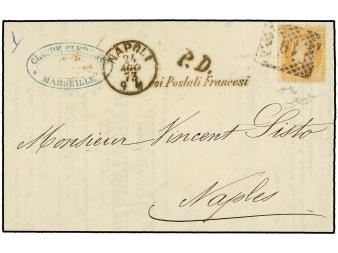 CLAUDE CLER
MARSEILLE
NAPOLI
24
AGO
73
P.D.
oi Postali Francesi
Monsieur Vincent Sisto
Naples